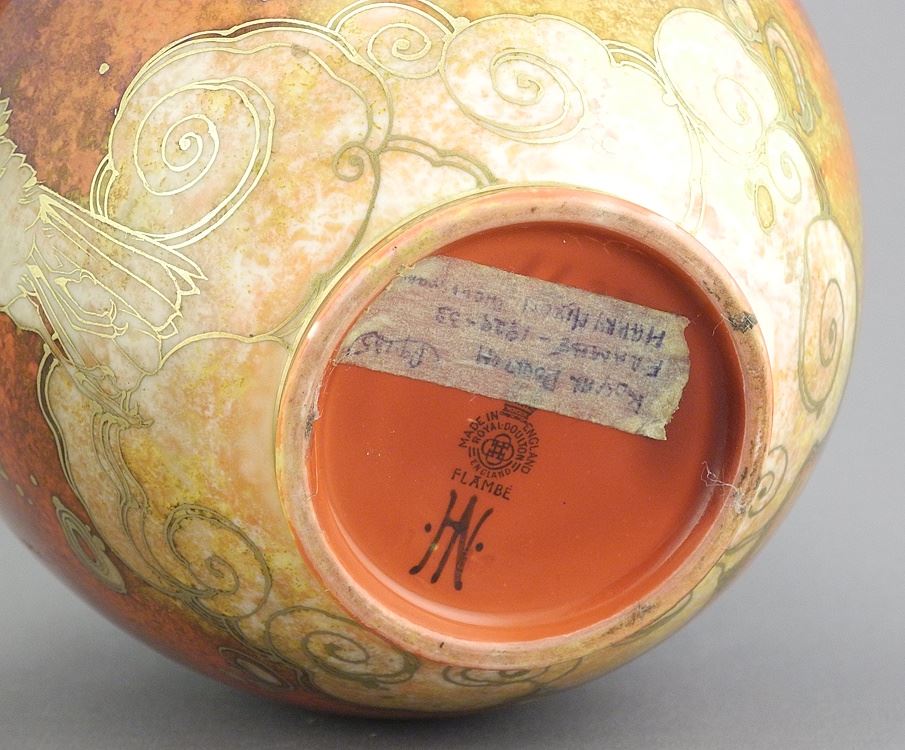 ROYAL DOULTON
FLAMBÉ - 1929-33
HARRY NIXON
MADE IN ENGLAND
ROYAL·DOULTON
ENGLAND
FLAMBÉ
·HN·